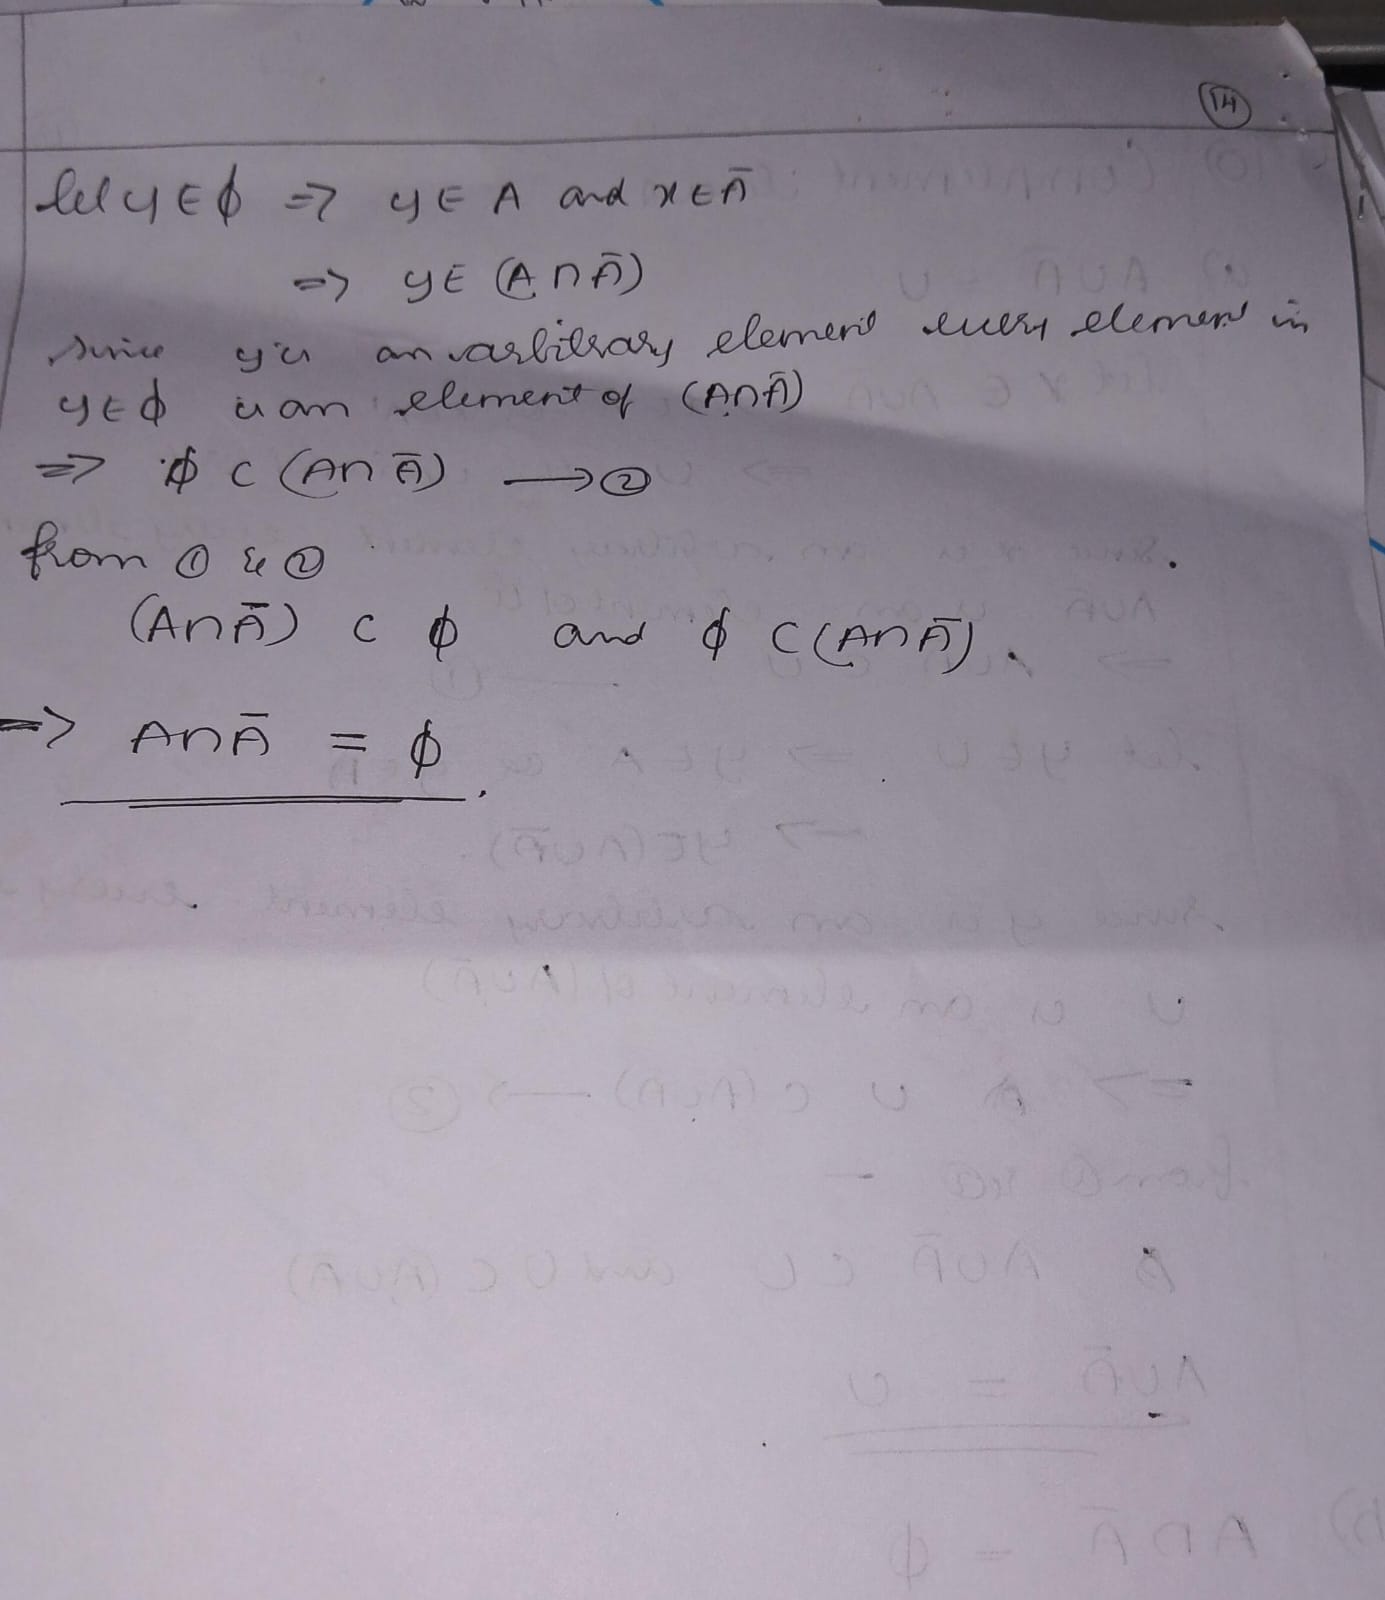 14
let y ∈ ϕ => y ∈ A and x ∈ Ā
=> y ∈ (A ∩ Ā)
since y is an arbitrary element every element in
y ∈ ϕ is an element of (A∩Ā)
=> ϕ ⊂ (A∩ Ā) → ②
from ① & ②
(A∩Ā) ⊂ ϕ and ϕ ⊂ (A∩Ā).
=> A∩Ā = ϕ.